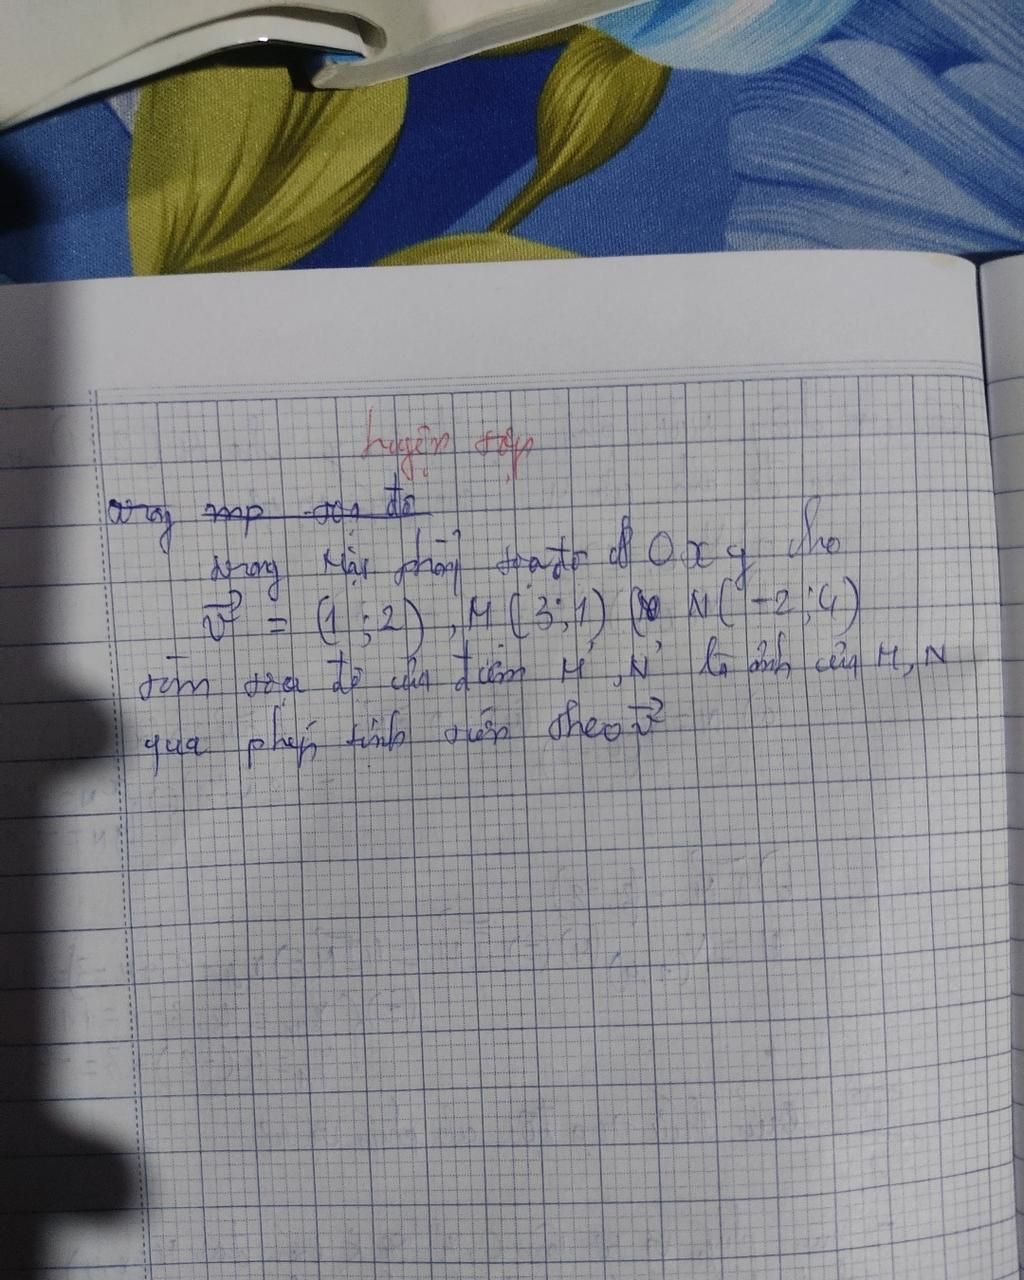 Luyện tập
trong mp toạ độ
trong Mặt phẳng toạ độ Oxy cho
v⃗ = (1;2), M(3;1) N(-2;4)
tìm toạ độ của điểm M', N' là ảnh của M, N
qua phép tịnh tiến theo v⃗